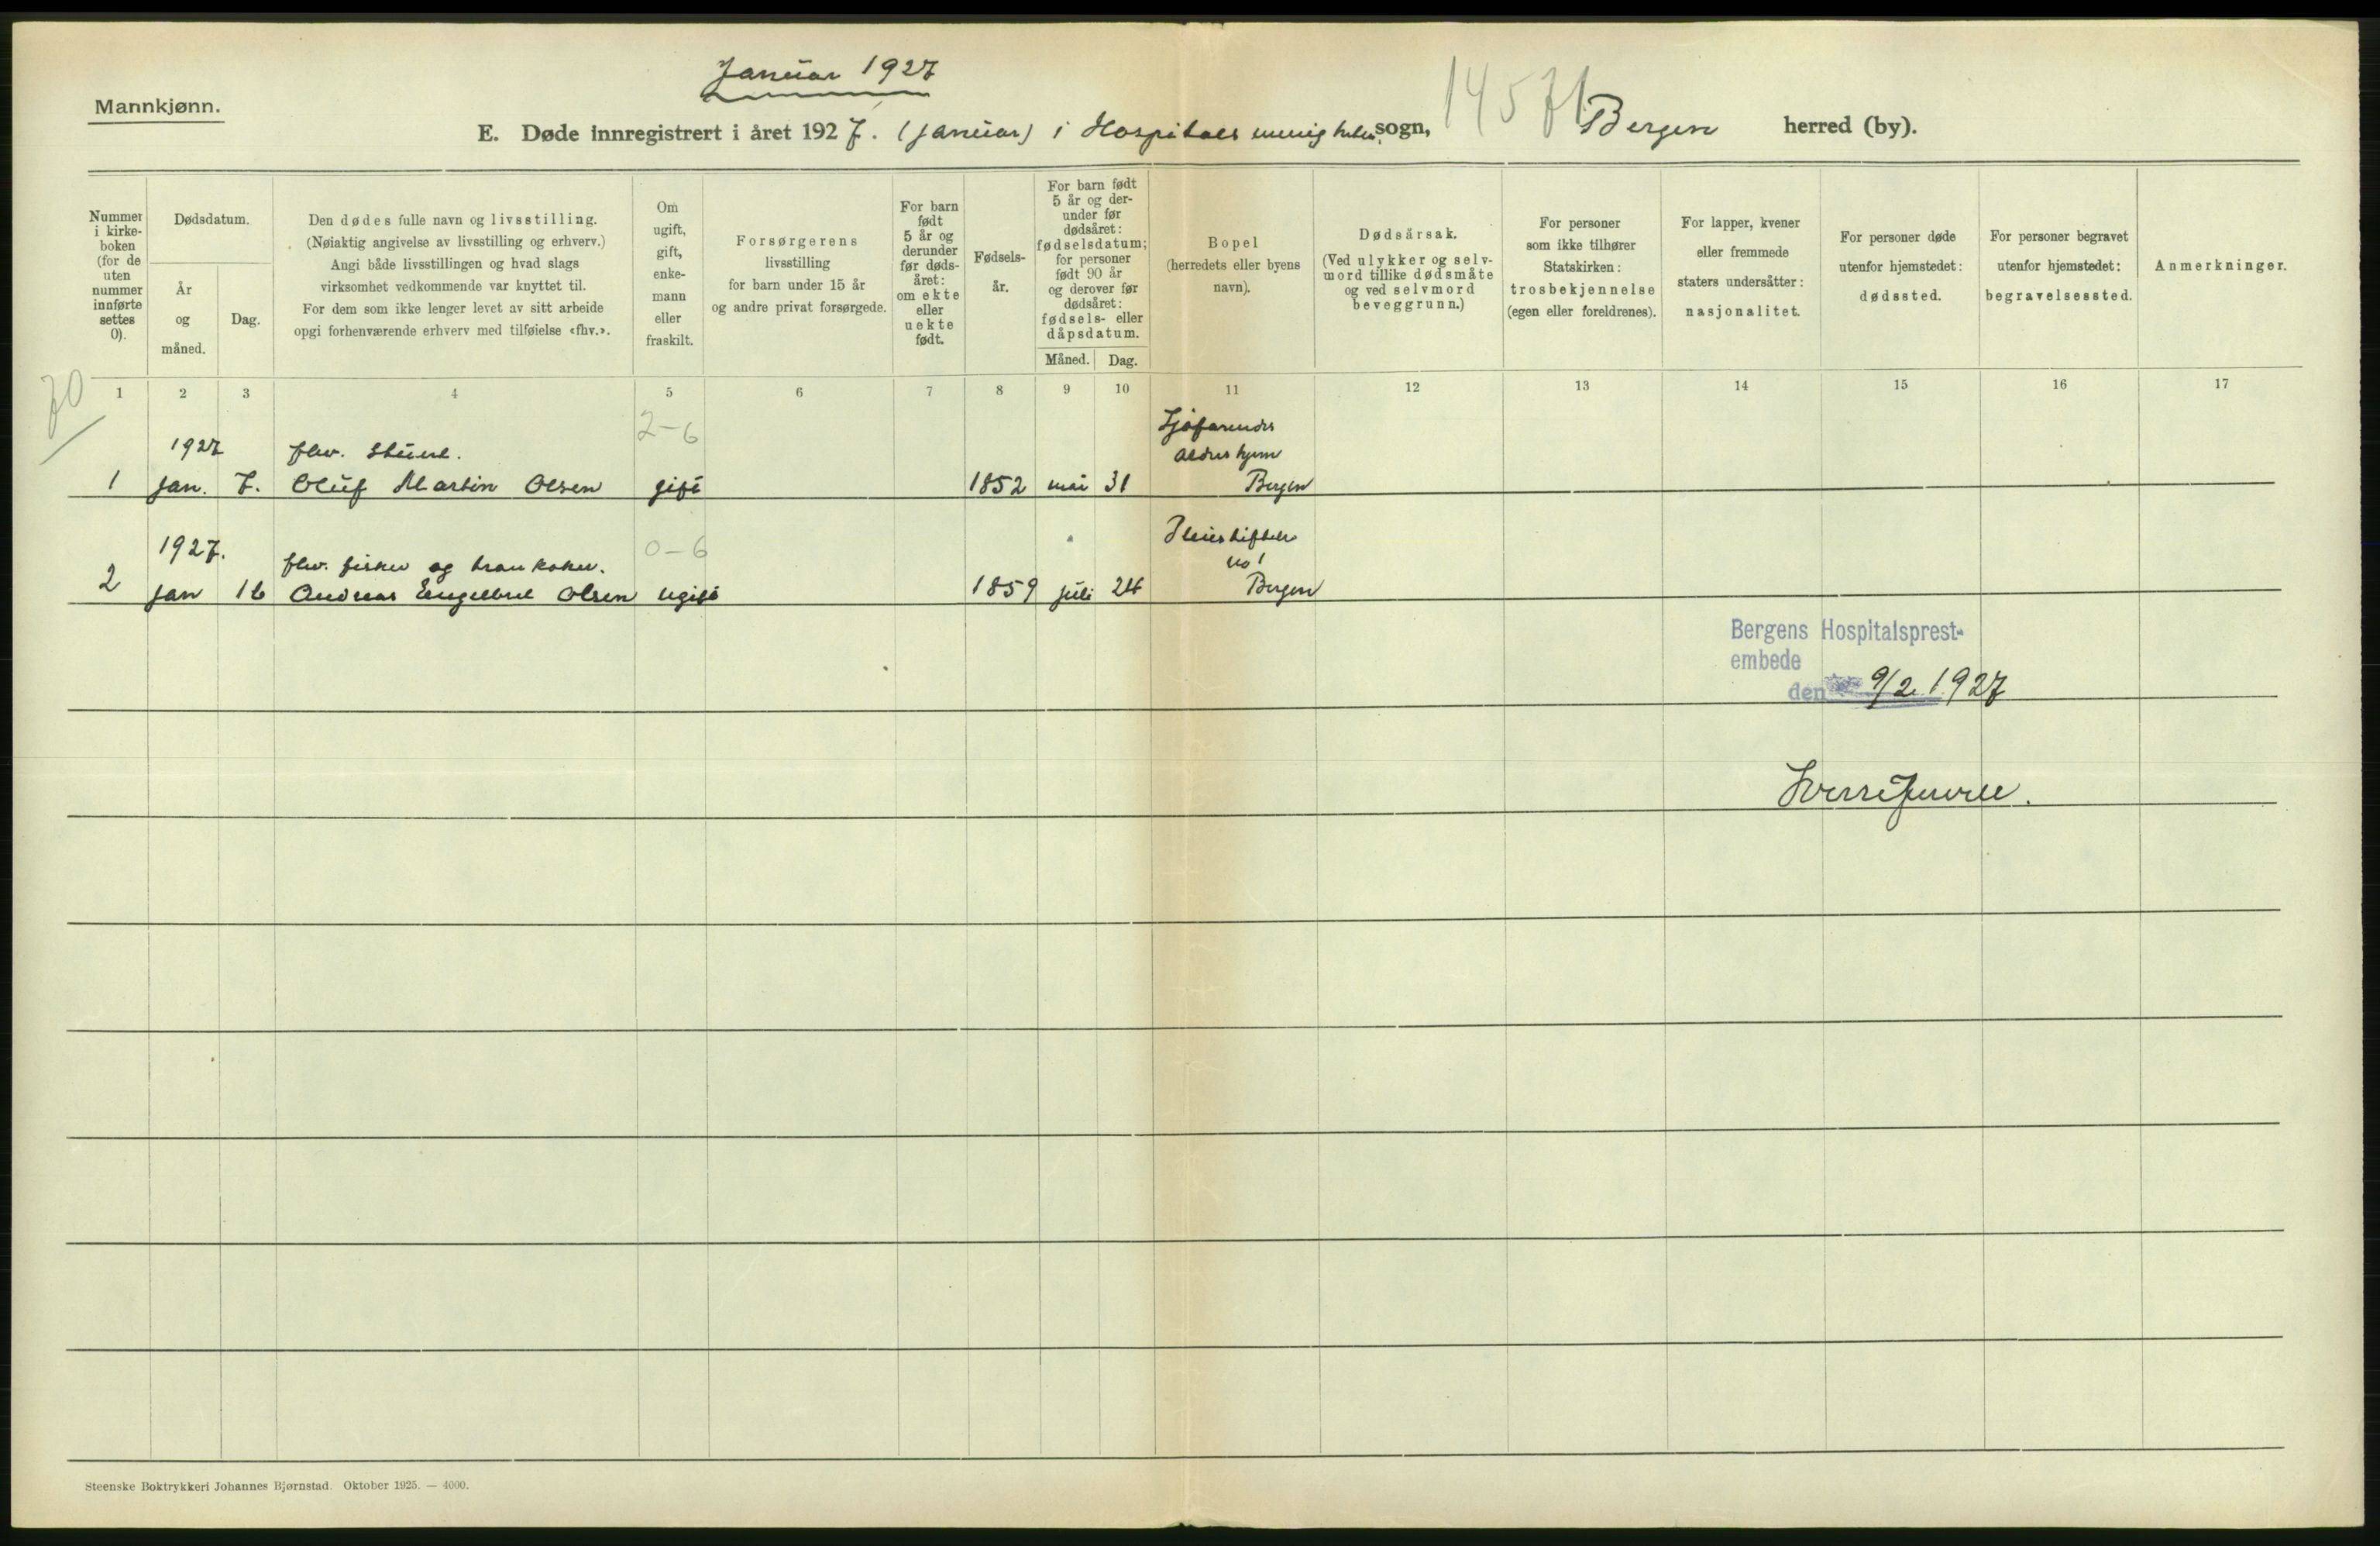 Januar 1927
Mannkjønn.
E. Døde innregistrert i året 1927. (januar) i Hospitals menighets sogn, 14571 Bergen herred (by).
Nummer i kirke-boken (for de uten nummer innførte settes 0).
Dødsdatum.
År og måned.
Dag.
Den dødes fulle navn og livsstilling.
(Nøiaktig angivelse av livsstilling og erhverv.)
Angi både livsstillingen og hvad slags
virksomhet vedkommende var knyttet til.
For dem som ikke lenger levet av sitt arbeide
opgi forhenværende erhverv med tilføielse «fhv.».
Om ugift, gift, enke-mann eller fraskilt.
Forsørgerens
livsstilling
for barn under 15 år
og andre privat forsørgede.
For barn født 5 år og derunder før døds-året: om ekte eller uekte født.
Fødsels-år.
For barn født 5 år og der-under før dødsåret: fødselsdatum; for personer født 90 år og derover før dødsåret: fødsels- eller dåpsdatum.
Måned. Dag.
Bopel
(herredets eller byens
navn).
Dødsårsak.
(Ved ulykker og selv-
mord tillike dødsmåte
og ved selvmord
beveggrunn.)
For personer
som ikke tilhører
Statskirken:
trosbekjennelse
(egen eller foreldrenes).
For lapper, kvener
eller fremmede
staters undersåtter:
nasjonalitet.
For personer døde
utenfor hjemstedet:
dødssted.
For personer begravet
utenfor hjemstedet:
begravelsessted.
Anmerkninger.
70
1 2 3 4 5 6 7 8 9 10 11 12 13 14 15 16 17
2-6
Sjøfarendes
1927 fhv. stuert. aldershjem
1 jan. 7. Oluf Martin Olsen gift 1852 mai 31 Bergen
Pleiestiftelse
1927. 0-6 no 1
fhv. fisker og trankoker.
2 jan 16 Andreas Engelbret Olsen ugift 1859 juli 24 Bergen
Bergens Hospitalsprest-
embede
den 9/2 1927
Steenske Boktrykkeri Johannes Bjørnstad. Oktober 1925. — 4000.